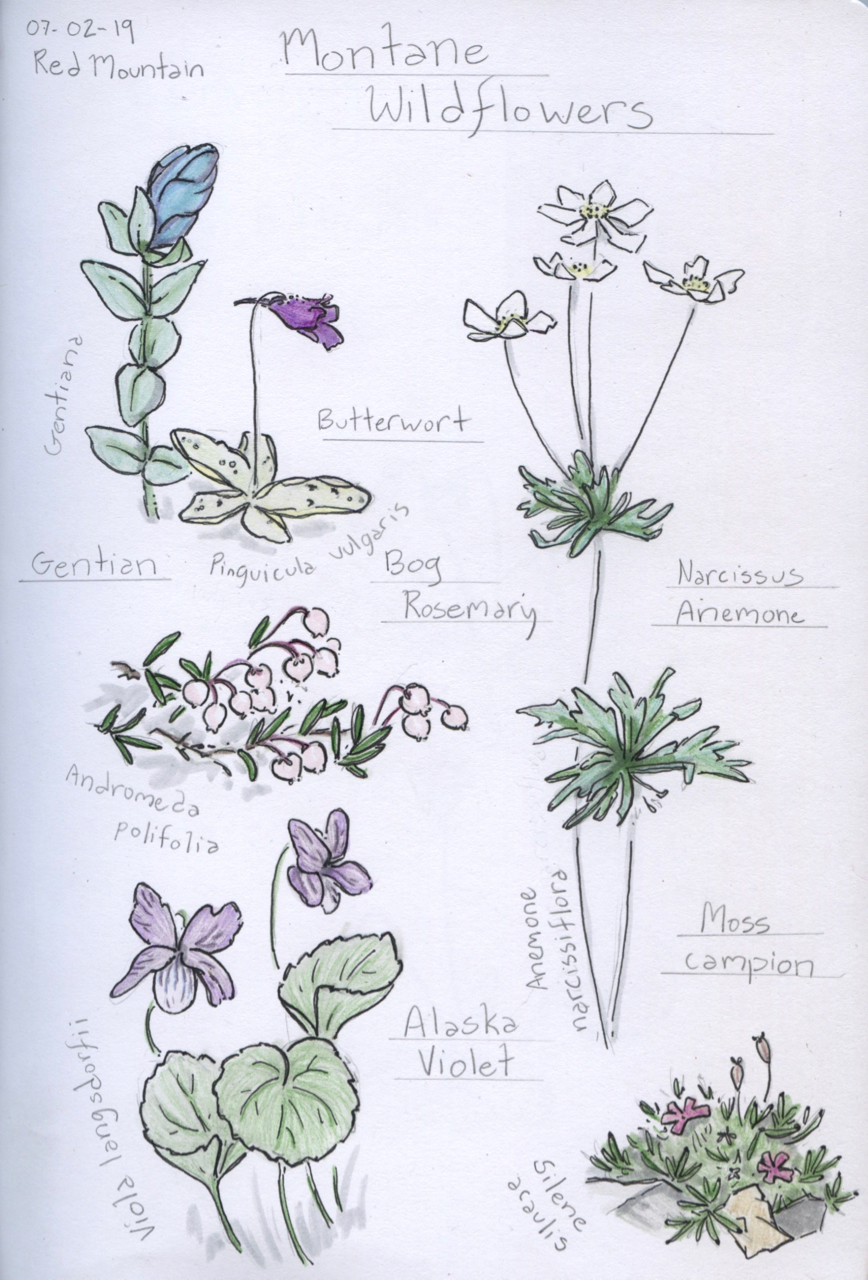 07-02-19
Red Mountain
Montane
Wildflowers
Gentiana
Butterwort
Gentian
Pinguicula vulgaris
Bog
Rosemary
Narcissus
Anemone
Andromeda
polifolia
Anemone
narcissiflora
Moss
campion
Alaska
Violet
Viola langsdorfii
Silene
acaulis